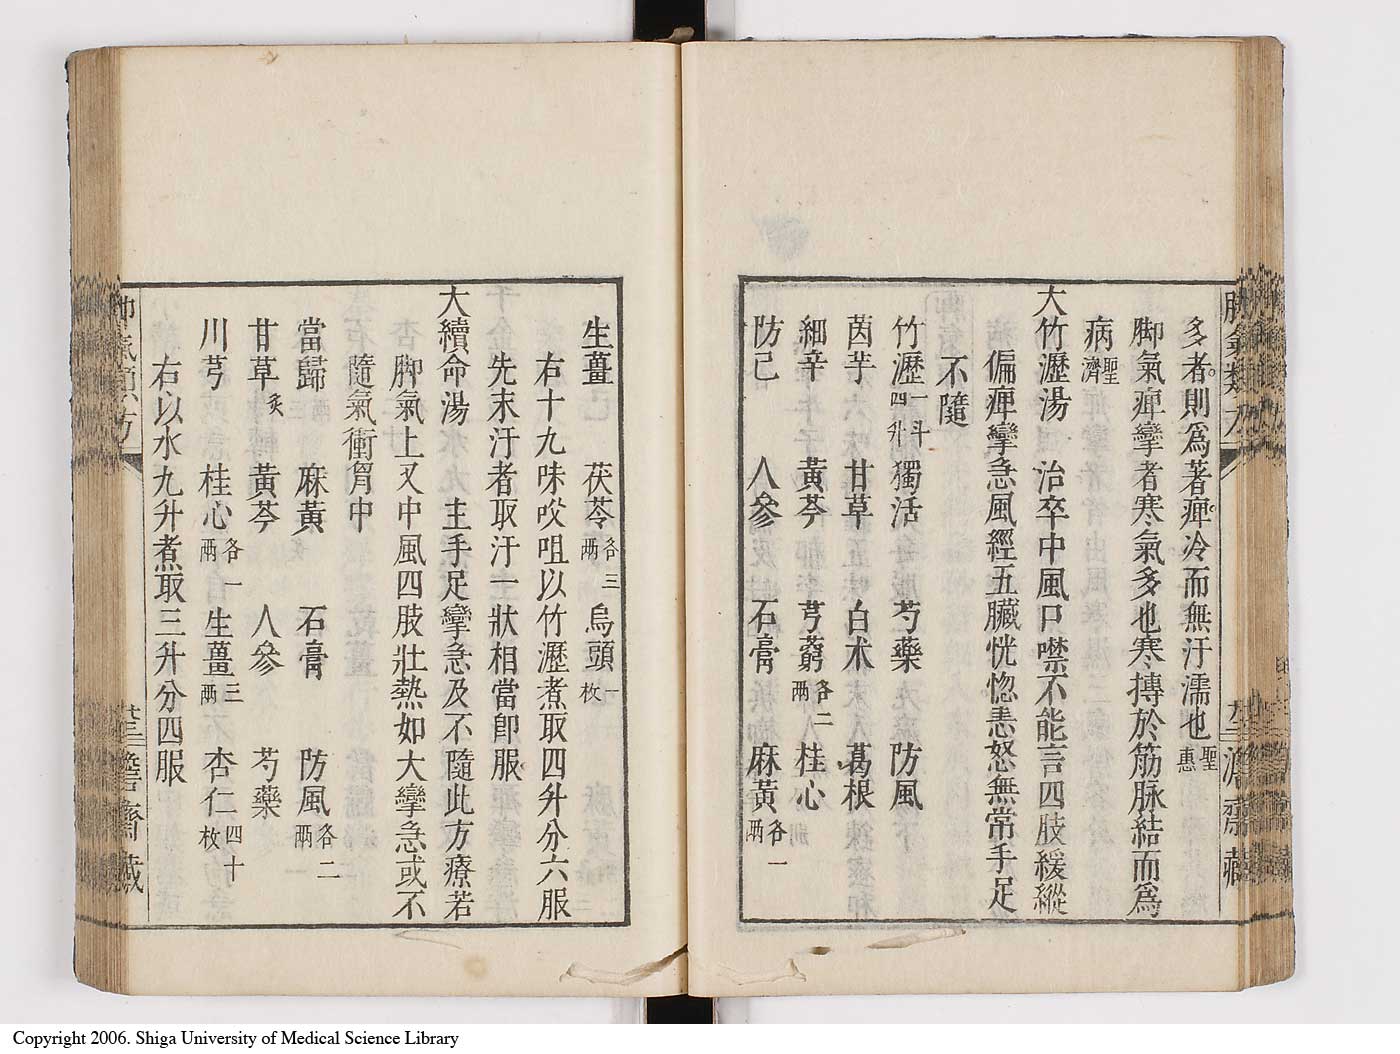 多者則爲著痺冷而無汗濡也聖惠
脚氣痺攣者寒氣多也寒搏於筋脉結而爲
病聖濟
大竹瀝湯 治卒中風口噤不能言四肢緩縱
偏痺攣急風經五臟恍惚恚怒無常手足
不隨
竹瀝一斗四升 獨活 芍藥 防風
茵芋 甘草 白朮 葛根
細辛 黃芩 芎藭各二兩 桂心
防己 人參 石膏 麻黃各一兩
生薑 茯苓各三兩 烏頭一枚
右十九味㕮咀以竹瀝煮取四升分六服
先未汗者取汗一狀相當卽服
大續命湯 主手足攣急及不隨此方療若
脚氣上又中風四肢壯熱如大攣急或不
隨氣衝胷中
當歸 麻黃 石膏 防風各二兩
甘草炙 黃芩 人參 芍藥
川芎 桂心各一兩 生薑三兩 杏仁四十枚
右以水九升煮取三升分四服
Copyright 2006. Shiga University of Medical Science Library